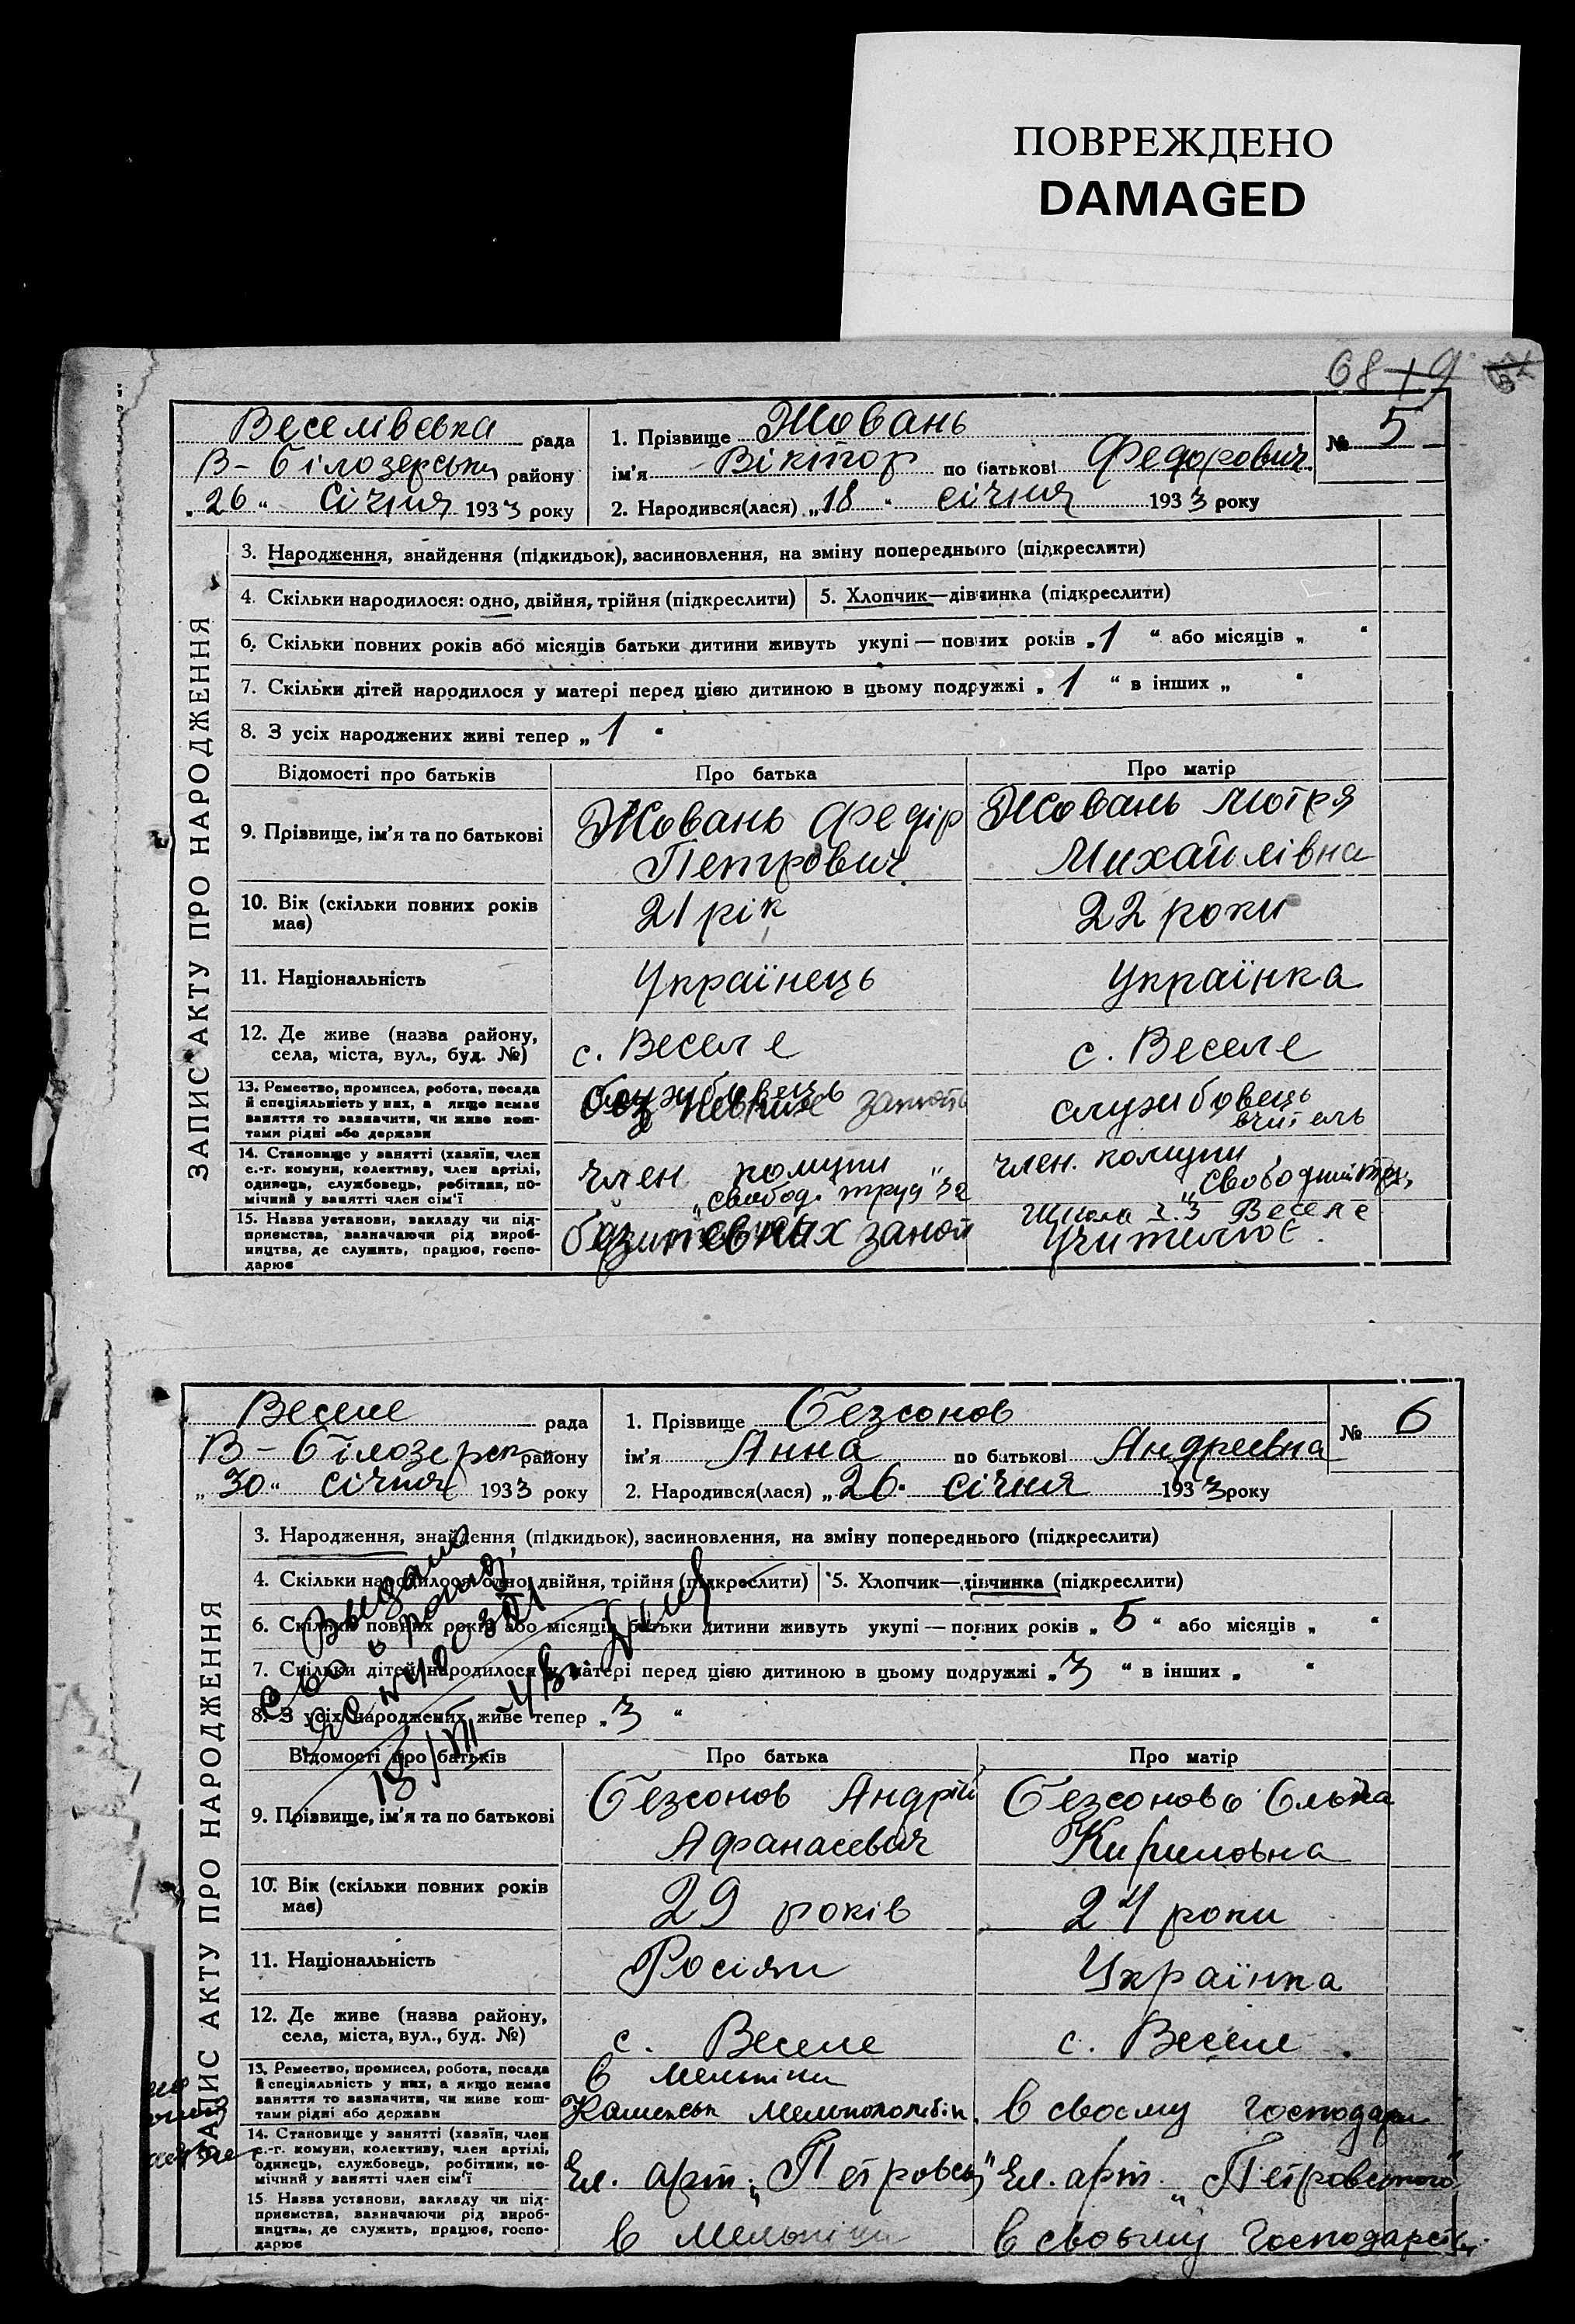 ПОВРЕЖДЕНО
DAMAGED
68 19
Веселівська рада
В-Білозерськ району
„26“ Січня 1933 року
1. Прізвище Жовань
ім’я Віктор по батькові Федорович
2. Народився(лася) „18“ січня 1933 року
№ 5
ЗАПИС АКТУ ПРО НАРОДЖЕННЯ
3. Народження, знайдення (підкидьок), засиновлення, на зміну попереднього (підкреслити)
4. Скільки народилося: одно, двійня, трійня (підкреслити) 5. Хлопчик—дівчинка (підкреслити)
6. Скільки повних років або місяців батьки дитини живуть укупі — повних років „1“ або місяців „ “
7. Скільки дітей народилося у матері перед цією дитиною в цьому подружжі „1“ в інших „ “
8. З усіх народжених живі тепер „1“
Відомості про батьків Про батька Про матір
9. Прізвище, ім’я та по батькові
Жовань Федір
Петрович
Жовань Мотря
Михайлівна
10. Вік (скільки повних років
має)
21 рік
22 роки
11. Національність
Українець
Українка
12. Де живе (назва району,
села, міста, вул., буд. №)
с. Веселе
с. Веселе
13. Ремество, промисел, робота, посада
й спеціяльність у них, а якщо немає
заняття то зазначити, чи живе кош-
тами рідні або держави
службовець
без певних занять
службовець
вчитель
14. Становище у занятті (хазяїн, член
с.-г. комуни, колективу, член артілі,
одинець, службовець, робітник, по-
мічний у занятті член сім’ї
член комуни
„Свобод. труд“
член. комуни
„Свободний
15. Назва установи, закладу чи під-
приємства, вазначаючи рід вироб-
ництва, де служить, працює, госпо-
дарює
певних занят
Школа Веселе
Учителює.
Веселе рада
В-Білозерск району
„30“ січня 1933 року
1. Прізвище Безсонов
ім’я Анна по батькові Андреевна
2. Народився(лася) „26. січня 1933 року
№ 6
ЗАПИС АКТУ ПРО НАРОДЖЕННЯ
3. Народження, знайдення (підкидьок), засиновлення, на зміну попереднього (підкреслити)
4. Скільки народилося: одно, двійня, трійня (підкреслити) 5. Хлопчик—дівчинка (підкреслити)
6. Скільки повних років або місяців батьки дитини живуть укупі — повних років „5“ або місяців „ “
7. Скільки дітей народилося у матері перед цією дитиною в цьому подружжі „3“ в інших „ “
8. З усіх народжених живе тепер „3“
Выдано
Відомості про батьків Про батька Про матір
9. Прізвище, ім’я та по батькові
Безсонов Андрій
Афанасевич
Безсонова
Кириловна
10. Вік (скільки повних років
має)
29 років
24 роки
11. Національність
Росіян
Українка
12. Де живе (назва району,
села, міста, вул., буд. №)
с. Веселе
с. Веселе
13. Ремество, промисел, робота, посада
й спеціяльність у них, а якщо немає
заняття то вазначити, чи живе кош-
тами рідні або держави
в
в своєму господар
14. Становище у занятті (хазяїн, член
с.-г. комуни, колективу, член артілі,
одинець, службовець, робітник, по-
мічний у занятті член сім’ї
Чл. арт. „Петровськ“
Чл. арт. „Петровського“
15. Назва установи, закладу чи під-
приємства, вазначаючи рід вироб-
ництва, де служить, працює, госпо-
дарює
в
в своєму господарств